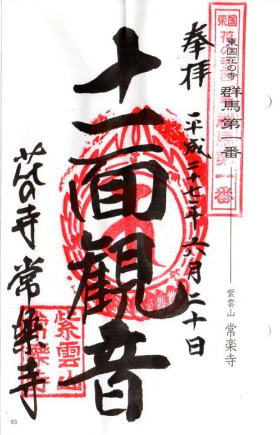 東国花の寺
群馬第一番
紫雲山 常楽寺
奉拝 平成二七年六月二十日
十一面観音
花の寺 常楽寺
紫雲山
常楽寺
63